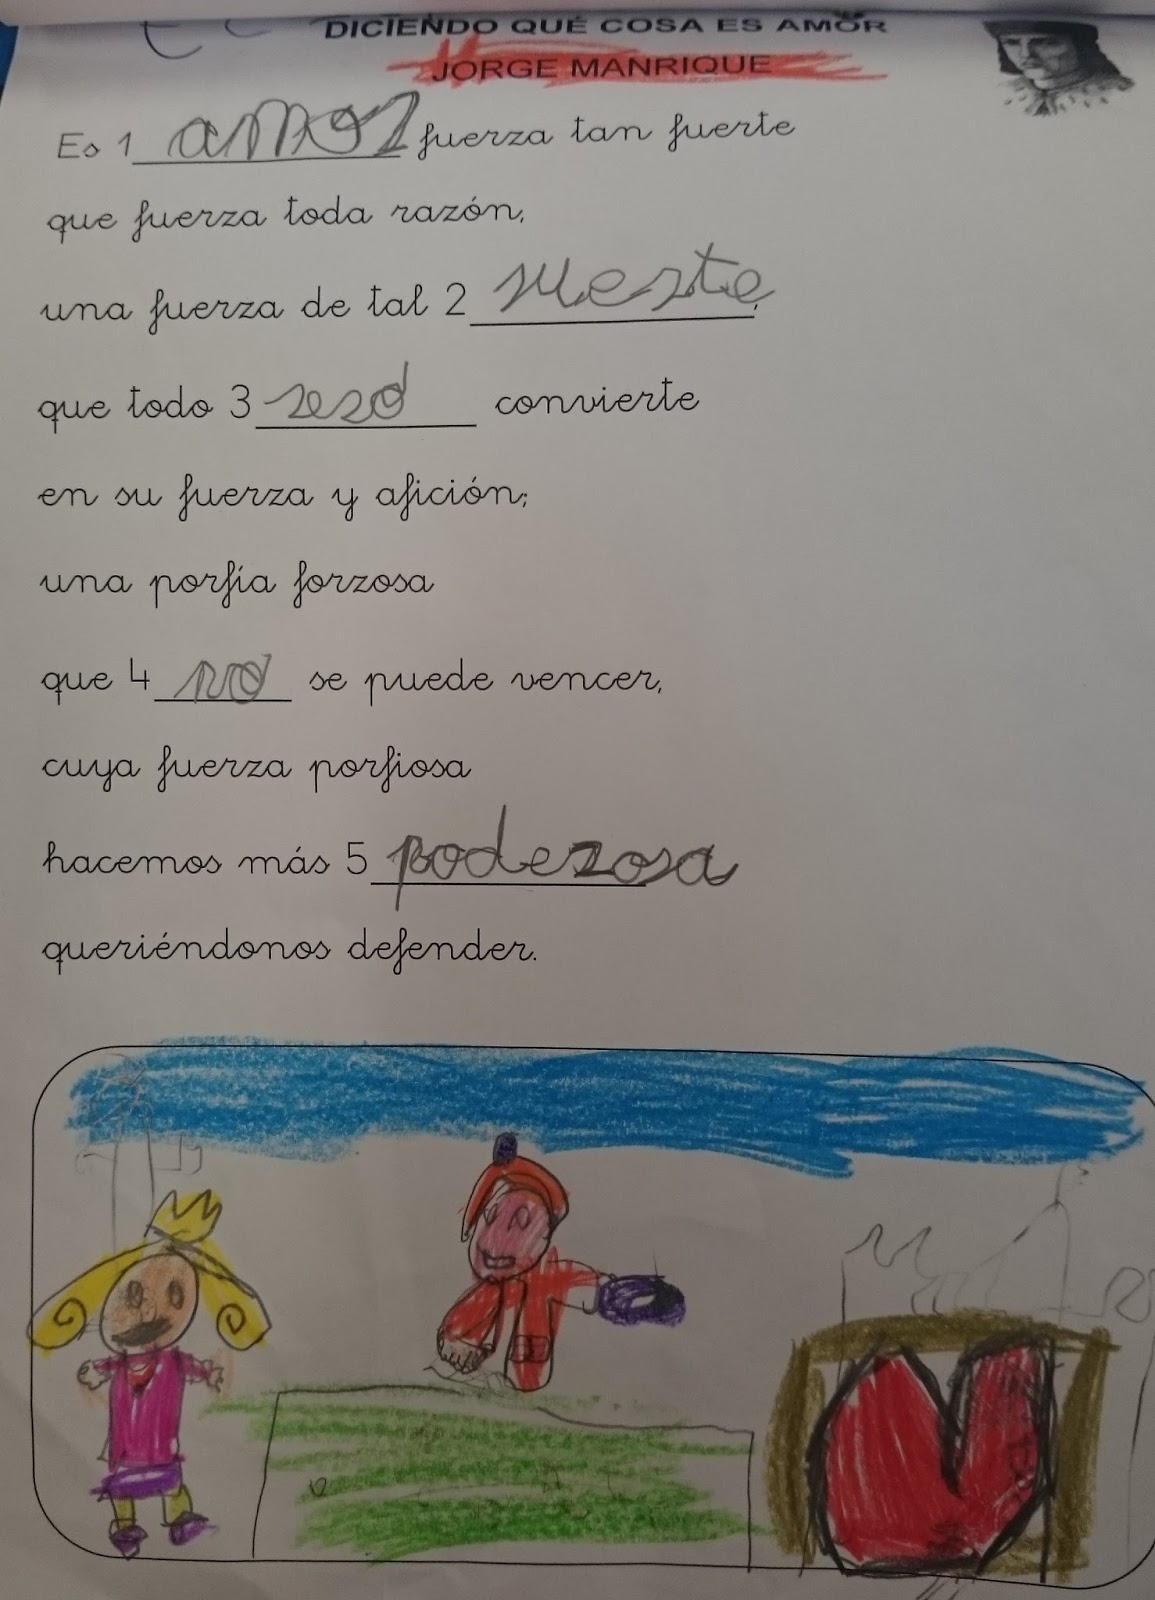 DICIENDO QUÉ COSA ES AMOR
JORGE MANRIQUE
Es 1 amor fuerza tan fuerte
que fuerza toda razón,
una fuerza de tal 2 suerte,
que todo 3 seso convierte
en su fuerza y afición;
una porfía forzosa
que 4 no se puede vencer,
cuya fuerza porfiosa
hacemos más 5 poderosa
queriéndonos defender.